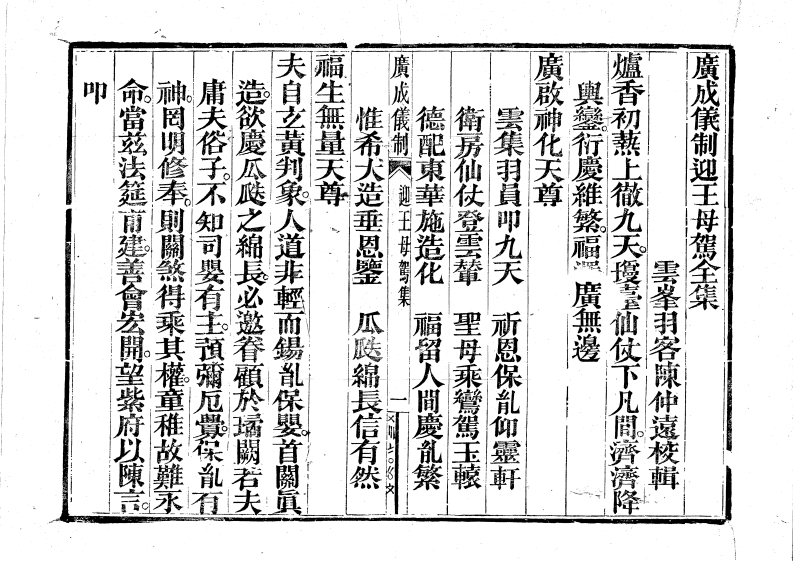 廣成儀制迎王母駕全集
雲峯羽客陳仲遠校輯
爐香初爇上徹九天。瓊臺仙仗下凡間。濟濟降
輿鑾。衍慶維繁。福 廣無邊
廣啟神化天尊
雲集羽員叩九天 祈恩保胤仰靈軒
衛房仙仗登雲輦 聖母乘鸞駕玉轅
德配東華施造化 福留人間慶胤繁
惟希大造垂恩鑒 瓜瓞綿長信有然
廣成儀制 迎王母駕集 一
福生無量天尊
夫自玄黃判象。人道非輕而錫胤保嬰。首關眞
造。欲慶瓜瓞之綿長必邀眷顧於璚闕。若夫
庸夫俗子。不知司嬰有主。預彌厄釁。保胤有
神。罔明修奉。則關煞得乘其權。童稚故難永
命。當茲法筵甫建。善會宏開。望紫府以陳言。
叩